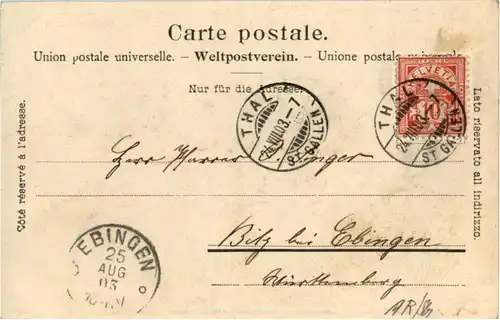 Carte postale.
Union postale universelle. – Weltpostverein. – Unione postale
Nur für die Adresse.
Côté réservé à l'adresse.
Lato riservato all indirizzo.
HELVETIA
10
THAL
24.VIII.03.–7
ST. GALLEN
THAL
24.VIII.03.–7
ST. GALLEN
Herr Pfarrer
Bitz bei Ebingen
Württemberg
EBINGEN
25
AUG
03